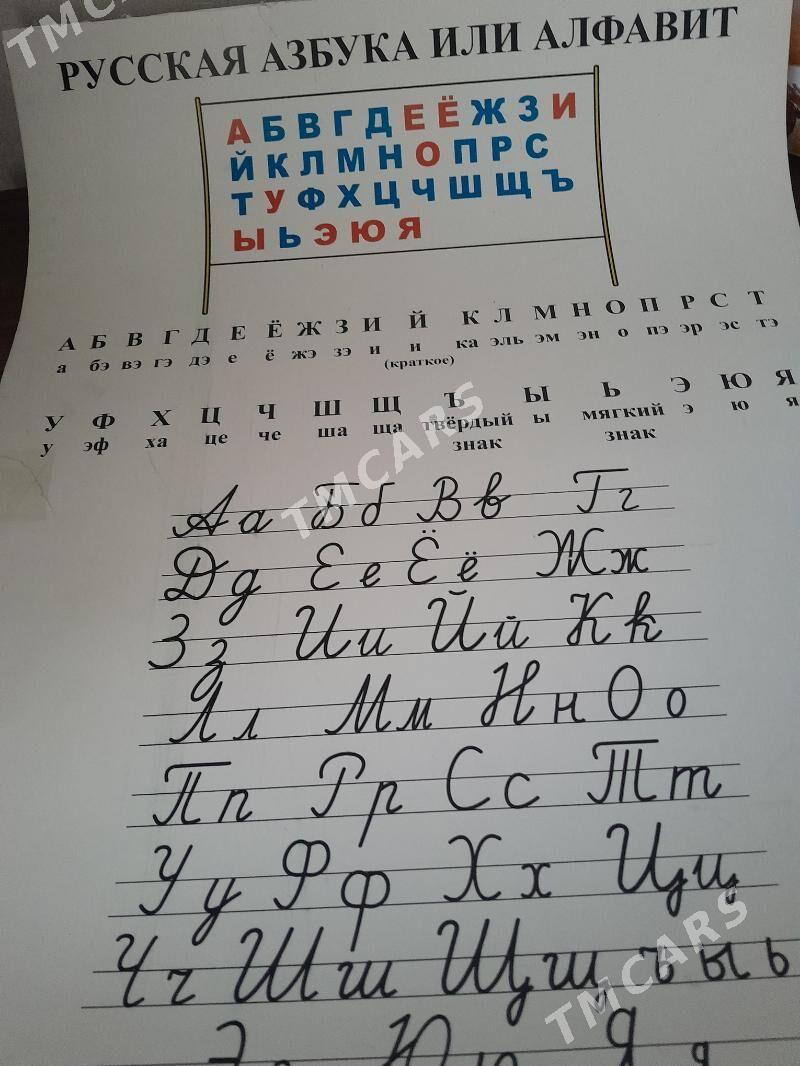 TMCARS
РУССКАЯ АЗБУКА ИЛИ АЛФАВИТ
А Б В Г Д Е Ё Ж З И
Й К Л М Н О П Р С
Т У Ф Х Ц Ч Ш Щ Ъ
Ы Ь Э Ю Я
А Б В Г Д Е Ё Ж З И Й К Л М Н О П Р С Т
а бэ вэ гэ дэ е ё жэ зэ и и ка эль эм эн о пэ эр эс тэ
(краткое)
У Ф Х Ц Ч Ш Щ Ъ Ы Ь Э Ю Я
у эф ха це че ша ща твёрдый ы мягкий э ю я
знак знак
TMCARS
Аа Бб Вв Гг
Дд Ее Ёё Жж
Зз Ии Йй Кк
Лл Мм Нн Оо
Пп Рр Сс Тт
Уу Фф Хх Цц
Чч Шш Щщ ъ ы ь
TMCARS